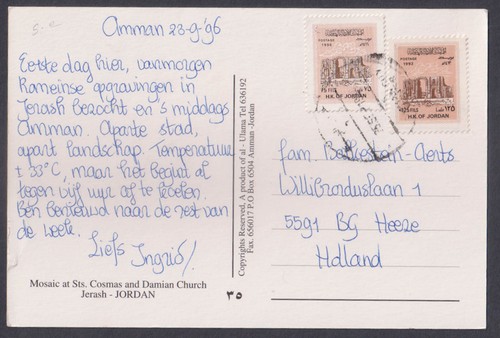 Amman 23-9-'96
Eerste dag hier, vanmorgen
Romeinse opgravingen in
Jerash bezocht en 's middags
Amman. Aparte stad,
apart landschap. Temperatuur
± 33°C, maar het begint al
tegen vijf uur af te koelen.
Ben benieuwd naar de rest van
de week.
Liefs Ingrid
Mosaic at Sts. Cosmas and Damian Church
Jerash - JORDAN
٣٥
Copyrights Reserved, A product of al - Ulama Tel 636192
Fax. 656017 P.O Box 6504 Amman -Jordan
POSTAGE
125 FILS ١٢٥
H.K. OF JORDAN
POSTAGE
125 FILS ١٢٥
H.K. OF JORDAN
fam. Berkestein-Aerts
Willibrorduslaan 1
5591 BG Heeze
Holland